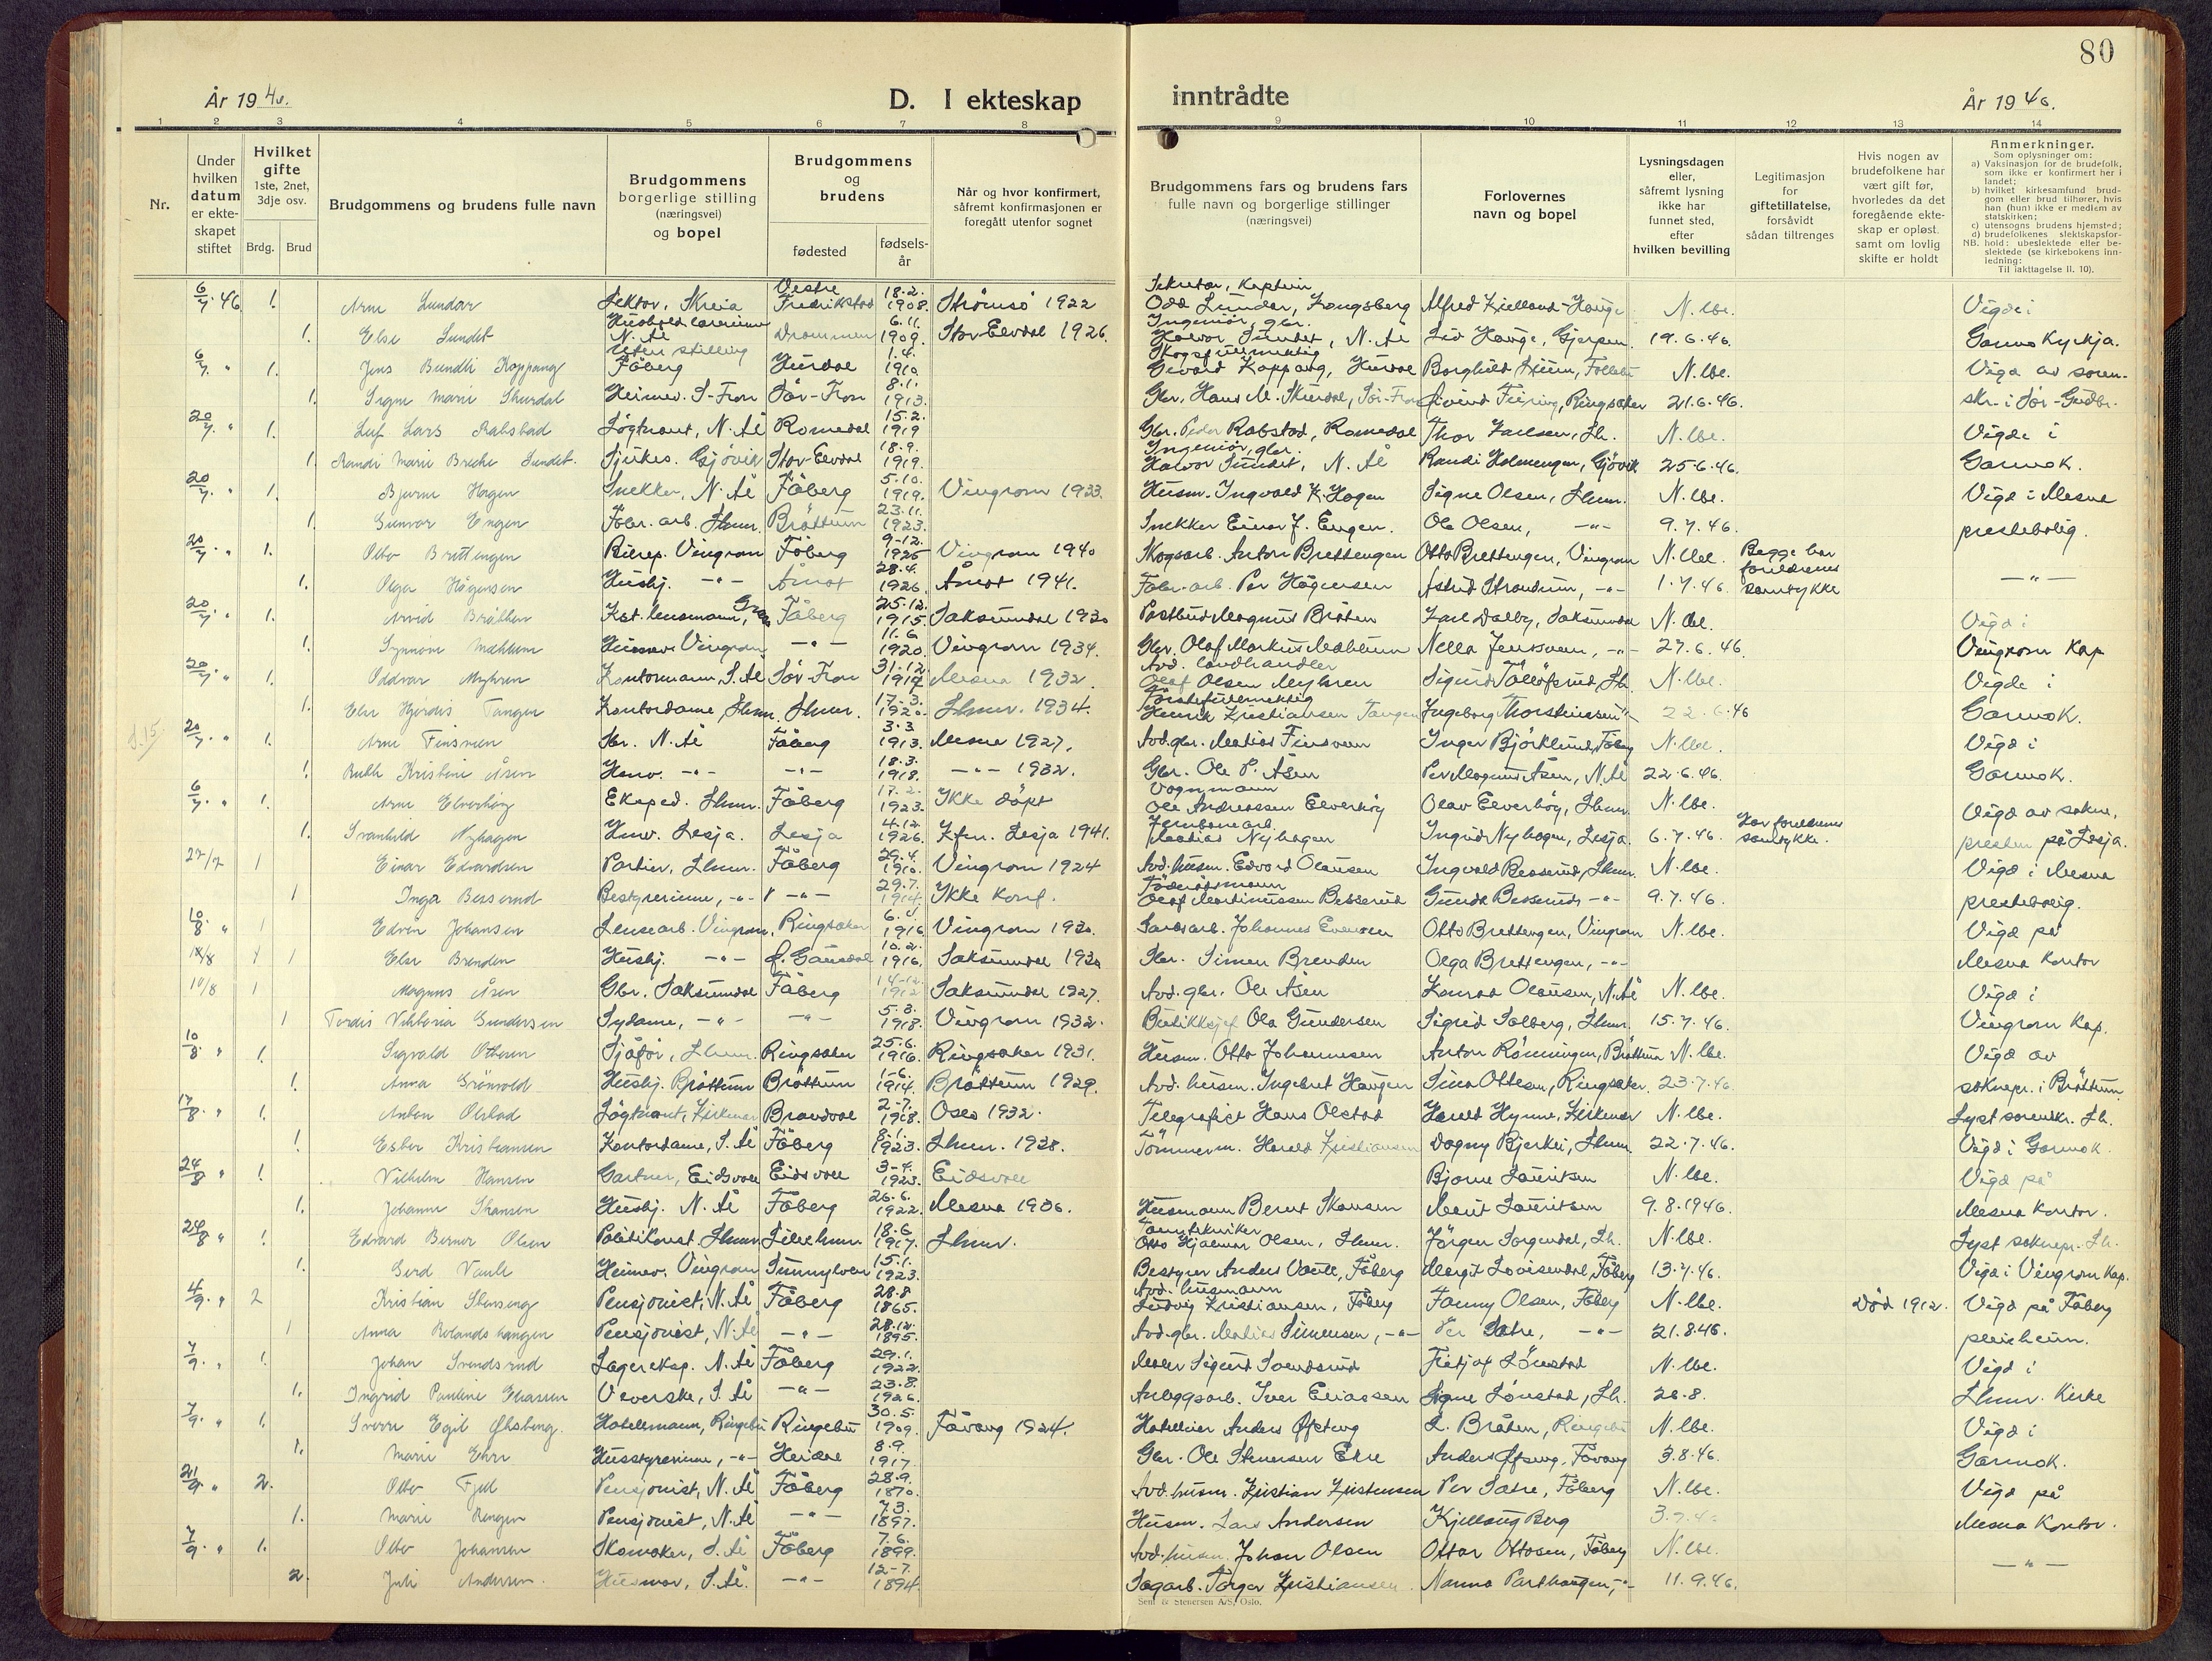 80
År 1946.
D. I ekteskap
inntrådte
År 1946.
1 2 3 4 5 6 7 8 9 10 11 12 13 14
Nr.
Under hvilken datum er ekteskapet stiftet
Hvilket gifte 1ste, 2net, 3dje osv.
Brdg. Brud
Brudgommens og brudens fulle navn
Brudgommens borgerlige stilling (næringsvei) og bopel
Brudgommens og brudens
fødested
fødselsår
Når og hvor konfirmert, såfremt konfirmasjonen er foregått utenfor sognet
Brudgommens fars og brudens fars fulle navn og borgerlige stillinger (næringsvei)
Forlovernes navn og bopel
Lysningsdagen eller, såfremt lysning ikke har funnet sted, efter hvilken bevilling
Legitimasjon for giftetillatelse, forsåvidt sådan tiltrenges
Hvis nogen av brudefolkene har vært gift før, hvorledes da det foregående ekteskap er opløst samt om lovlig skifte er holdt
Anmerkninger.
Som oplysninger om:
a) Vaksinasjon for de brudefolk, som ikke er konfirmert her i landet;
b) hvilket kirkesamfund brudgom eller brud tilhører, hvis han (hun) ikke er medlem av statskirken;
c) utensogns brudens hjemsted;
d) brudefolkenes slektskapsforhold: ubeslektede eller beslektede (se kirkebokens innledning:
NB.
Til iakttagelse II. 10).
6/7 46 1. Arne Lundar Lektor, Kreia Vestre Fredrikstad 18.2. 1908. Strömsö 1922 Odd Lundar, Kongsberg Alfred Kielland-Hauge N. lbe. Vigde i
1. Else Sundet N. Ål Drammen 6.11. 1909. Stor-Elvdal 1926. Ingeniør, gbr. Halvor Sundet, N. Ål Liv Hauge, Gjerpen. 19.6.46. Garmo Kyrkja.
6/7 " 1. Jens Bundli Koppang Uten stilling Fåberg Hurdal 1.4. 1910. Skogsfullmektig Koppang, Hurdal N. lbe. Vigd av soren-
1. Signe Marie Skurdal Heimev. S-Fron Sör-Fron 8.1. 1913. Gbr. Hans M. Skurdal, Sör-Fron Ringsaker 21.6.46. skr. i Sör-Gudbr.
20/7 " 1. Leif Lars Rabstad Lögtnant, N. Ål Romedal 15.2. 1919 Gbr. Peder Rabstad, Romedal Thor Karlsen, Lh. N. lbe. Vigde i
1. Randi Marie Breche Sundet. Sjukes. Gjövik Stor-Elvdal 18.9. 1919. Ingeniør, gbr. Halvor Sundet, N. Ål Randi Holmengen, Gjövik 25.6.46. Garmok.
20/7 " 1. Bjarne Hagen Snekker, N. Ål Fåberg 5.10. 1919. Vingrom 1933. Husm. Ingvald K. Hagen Signe Olsen, Lhmr. N. lbe. Vigd i Mesna
1. Gunvor Engen Fabr. arb. Lhmr. Bröttum 23.11. 1923. Snekker Einar J. Engen. Ole Olsen, -"- 9.7.46. prestebolig.
20/7 " 1. Otto Brettingen Bilrep. Vingrom Fåberg 9-12. 1925 Vingrom 1940 Skogsarb. Anton Brettengen Otto Brettengen, Vingrom N. lbe. Begge har foreldrenes
1. Olga Hågensen Hushj. -"- Åmot 28.4. 1926. Åmot 1941. Fabr. arb. Per Hågensen Astrid Strandum, -"- 1.7.46. samtykke -"-
20/7 " 1. Arvid Bråthen Kst. lensmann, Fåberg 25.12. 1915. Saksumdal 1930 Postbud Magnus Bråten Karl Dalby, Saksumdal N. lbe. Vigd i
1. Synnöve Mæhlum Vingrom -"- 11.6 1920. Vingrom 1934. Gbr. Olaf Markus Mæhlum Nella Jensveen, -"- 27.6.46. Vingrom Kap
20/7 " 1. Oddvar Myhren Kontormann, S. Ål Sör-Fron 31.12. Mesna 1932. Avd. landhandler Olaf Olsen Myhren Lh. N. lbe. Vigde i
1. Else Hjördis Tangen Kontordame, Lhmr. Lhmr. 17-3. 1920. Lhmr. 1934. Førstefullmektig Henrik Kristiansen Tangen Ingeborg Thorsteinsen 22.6.46 Garmok.
20/7 " 1. Arne Finsveen Gbr. N. Ål Fåberg 3.3 1913. Mesna 1927. Avd. gbr. Matias Finsveen Inger Björklund, Fåberg N. lbe. Vigd i
1. Ruth Kristine Åsen Hmv. -"- -"- 18.3. 1918. -"- 1932. Gbr. Ole P. Åsen Per Magnus Åsen, N. Ål 22.6.46. Garmok.
6/7. " 1. Arne Elverhöy Eksped. Lhmr. Fåberg 17.2. 1923. Ikke döpt Vognmann Ole Andreassen Elverhöy Olav Elverhöy, Lhmr N. lbe. Vigd av sokne-
1. Svanhild Nyhagen Hmv. Lesja. Lesja 4.12. 1926. Kfm. Lesja 1941. Jernbanearb. Mathias Nyhagen Ingrid Nyhagen, Lesja. 6.7.46. Har foreldrenes samtykke. presten på Lesja.
27/7 1 Einar Edvardsen Portier, Lhmr. Fåberg 29.4. 1910. Vingrom 1924 Avd. husm. Edvard Olausen Ingvald Besserud, Lhmr. N. lbe. Vigd i Mesna
1 Inga Besserud Bestyrerinne, -"- -"- 29.7. 1914. Ikke konf. Föderådsmann Olaf Martinussen Besserud Gunda Besserud, -"- 9.7.46. prestebolig.
10/8 " 1 Edvin Johansen Lensearb. Vingrom, Ringsaker 1916 Vingrom 1930. Johannes Evensen Otto Brettengen, Vingrom N. lbe. Vigd på
10/8 1 Else Brenden Hushj. -"- Ö. Gausdal 10.2. 1916. Saksumdal 1930 Gbr. Simen Brenden Olga Brettengen, -"- Mesna kontor
10/8 1 Magnus Åsen Gbr. Saksumdal Fåberg 14-12. 1912 Saksumdal 1927. Avd. gbr. Ole Åsen Konrad Olausen, N. Ål N. lbe. Vigd i
1 Tordis Viktoria Gundersen Sydame, -"- -"- 5.3. 1918. Vingrom 1932. Butikksjef Ola Gundersen Sigrid Solberg, Lhmr. 15.7.46. Vingrom Kap.
10/8. " 1. Sigvald Ottesen Sjåför, Lhmr. Ringsaker 25.6. 1916. Ringsaker 1931. Husm. Otto Johannesen Anton Rönningen, Bröttum N. lbe. Vigd av
1. Anna Grönvold Hushj. Bröttum Bröttum 1-6. 1914. Bröttum 1929. Avd. husm. Ingebret Haugen Ottesen, Ringsaker. 23.7.46. soknepr. i Bröttum
17/8. " 1. Anton Olstad Lögtnant, Kirkenær Brandval 2-7. 1918. Oslo 1932. Telegrafist Hans Olstad Harald Hynne, Kirkenær N. lbe. Lyst sorenskr. Lh.
1. Ester Kristiansen Kontordame, S. Ål Fåberg 8.1. 1923. Lhmr. 1938. Tömmerm. Harald Kristiansen Dagny Bjerke, Lhmr. 22.7.46. Vigd i Garmok.
24/8 " 1. Vilhelm Hansen Gartner, Eidsvoll Eidsvoll 3-4. 1923. Eidsvoll Bjarne Lauritsen N. lbe. Vigd på
1. Johanne Skansen Hushj. N. Ål Fåberg 26.6. 1922. Mesna 1936. Husmann Bernt Skansen Marit Lauritsen 9.8.1946. Mesna Kontor.
24/8 " 1. Edvard Berner Olsen Politikonst. Lhmr Lillehmr 18.6 1917. Lhmr. Tanntekniker Otto Hjalmar Olsen, Lhmr. Jörgen Sorgendal, Lh. N. lbe. Lyst soknepr. Lh.
1. Gerd Vaule Heimev. Vingrom Sunnylven 15.1. 1923. Bestyrer Anders Vaule, Fåberg Margit Lovisendal, Fåberg 13.7.46. Vigd i Vingrom Kap.
4/9. " 2 Kristian Stenseng Pensjonist, N. Ål Fåberg 28.8 1865. Avd. husmann Ludvig Kristiansen, Fåberg Fanny Olsen, Fåberg N. lbe. Död 1912. Vigd på Fåberg
1 Anna Rolandshaugen Pensjonist, N. Ål -"- 28.12. 1895. Avd. gbr. Mathias Simensen, -"- Per Sætre, -"- 21.8.46. pleieheim.
7/9. " 1. Johan Svendsrud Lagereksp. N. Ål Fåberg 29.1. 1922. Maler Sigurd Svendsrud Lönstad N. lbe. Vigd i
1. Ingrid Pauline Eliassen Veverske, S. Ål -"- 23.8. 1926. Anleggsarb. Iver Eliassen Signe Lönstad, Lh. 26.8. Lhmr. Kirke
7/9. " 1. Sverre Egil Øfsteng. Hotellmann, Ringebu Ringebu 30.5. 1909. Fåvang 1924. Hotelleier Anders Øfsteng L. Bråten, Ringebu N. lbe. Vigd i
1. Marie Ekre Husstyrerinne, -"- Heidal 8.9. 1917. Gbr. Ole Stenersen Ekre Anders Øfsteng, Fåvang 3.8.46. Garmok.
21/9. " 2. Otto Fjell Pensjonist, N. Ål Fåberg 28.9. 1870. Avd. husm. Kristian Kristensen Per Sætre, Fåberg N. lbe. Vigd på
1. Marie Rengen Pensjonist, N. Ål -"- 7.3. 1897. Husm. Lars Andersen Kjellaug Berg Mesna Kontor.
7/9. " 1. Otto Johansen Skomaker, S. Ål Fåberg 7.6. 1899. Avd. husm. Johan Olsen Ottar Ottosen, Fåberg N. lbe. -"-
2. Juli Andersen. Husmor, S. Ål. -"- 12-7. 1894. Sagarb. Torger Kristiansen. Nanna Parthaugen, -"- 11.9.46.
Sem & Stenersen A/S, Oslo.